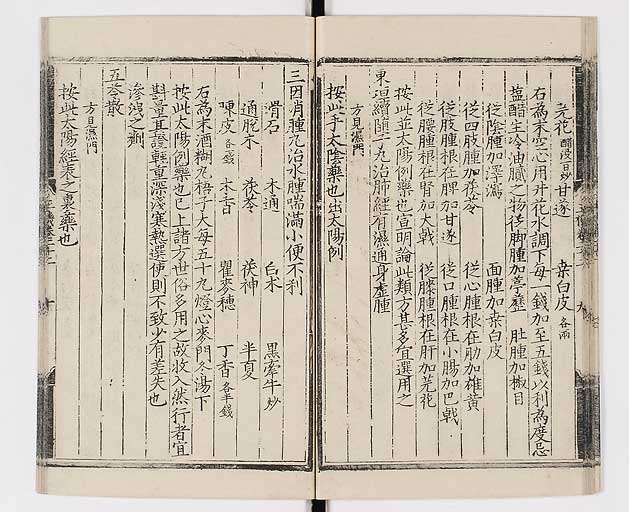 芫花醋浸百炒 甘遂 桒白皮各兩
右為末空心用井花水調下每一錢加至五錢以利為度忌
塩醋生冷油膩之物從脚腫加葶藶 肚腫加椒目
從陰腫加澤瀉 面腫加桒白皮
從四肢腫加茯苓 從心腫根在肋加雄黃
從肢腫根在脾加甘遂 從口腫根在小腸加巴戟
從腰腫根在腎加大戟 從膝腫根在肝加芫花
按此並太陽例藥也宣明論此類方甚多宜選用之
東垣續隨子丸治肺經有濕通身虛腫
方見濕門
按此手太陰藥也出太陽例
三因消腫丸治水腫喘滿小便不利
滑石 木通 白术 黒牽牛炒
通脫木 茯苓 茯神 半夏
陳皮各錢 木香 瞿麥穗 丁香各半錢
右為末酒糊丸梧子大每五十丸燈心麥門冬湯下
按此太陽例藥也已上諸方世俗多用之故收入然行者宜
斟量其證輕重深淺寒熱選使則不致少有差失也
滲洩之劑
五苓散
方見濕門
按此太陽經表之裏藥也